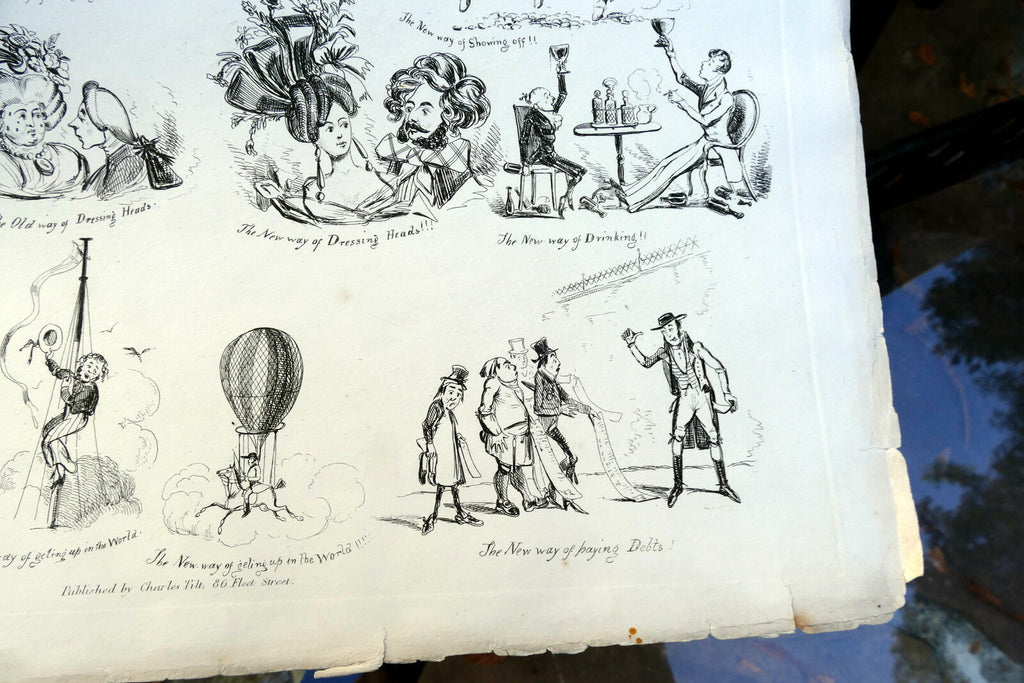 The New way of Showing off!!
Old way of Dressing Heads.
The New way of Dressing Heads!!!
The New way of Drinking!!
way of geting up in the World.
The New way of geting up in the World!!!!
The New way of paying Debts!
Published by Charles Tilt, 86 Fleet Street.